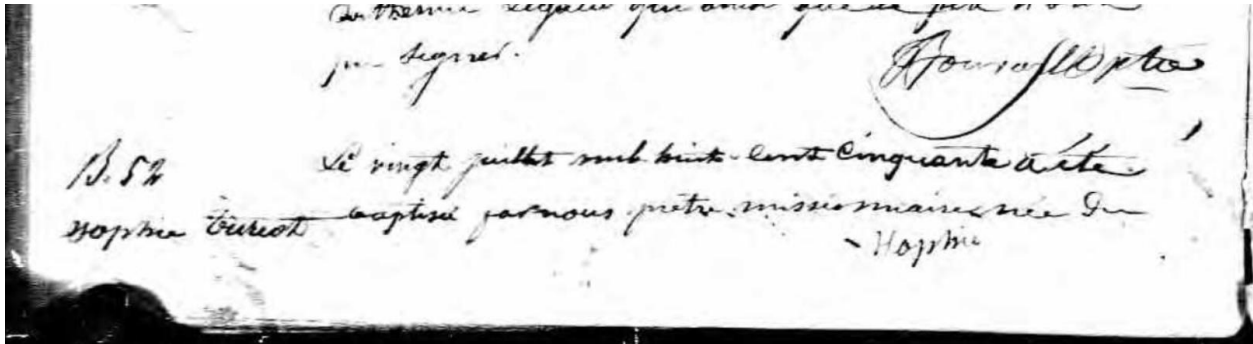 qui ainsi que le père n'ont
pu signer.
ptre
B. 52
Sophie Turcot
Le vingt juillet mil huit-cent cinquante a été
baptisé par nous prêtre missionnaire née du
Sophie